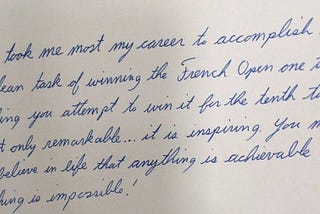 took me most my career to accomplish
lean task of winning the French Open one t
ing you attempt to win it for the tenth t
t only remarkable... it is inspiring. You m
believe in life that anything is achievable
hing is impossible!